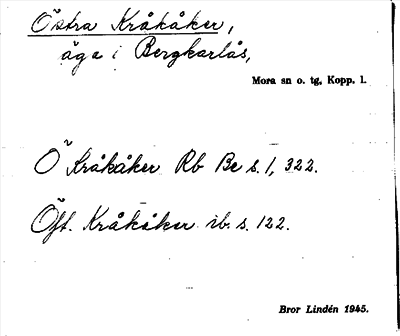 Östra Kråkåker,
äga i Bergkarlås,
Mora sn o. tg, Kopp. l.
Ö Kråkåker Rb Be s. 1, 322.
Öst. Kråkåker ib. s. 122.
Bror Lindén 1945.